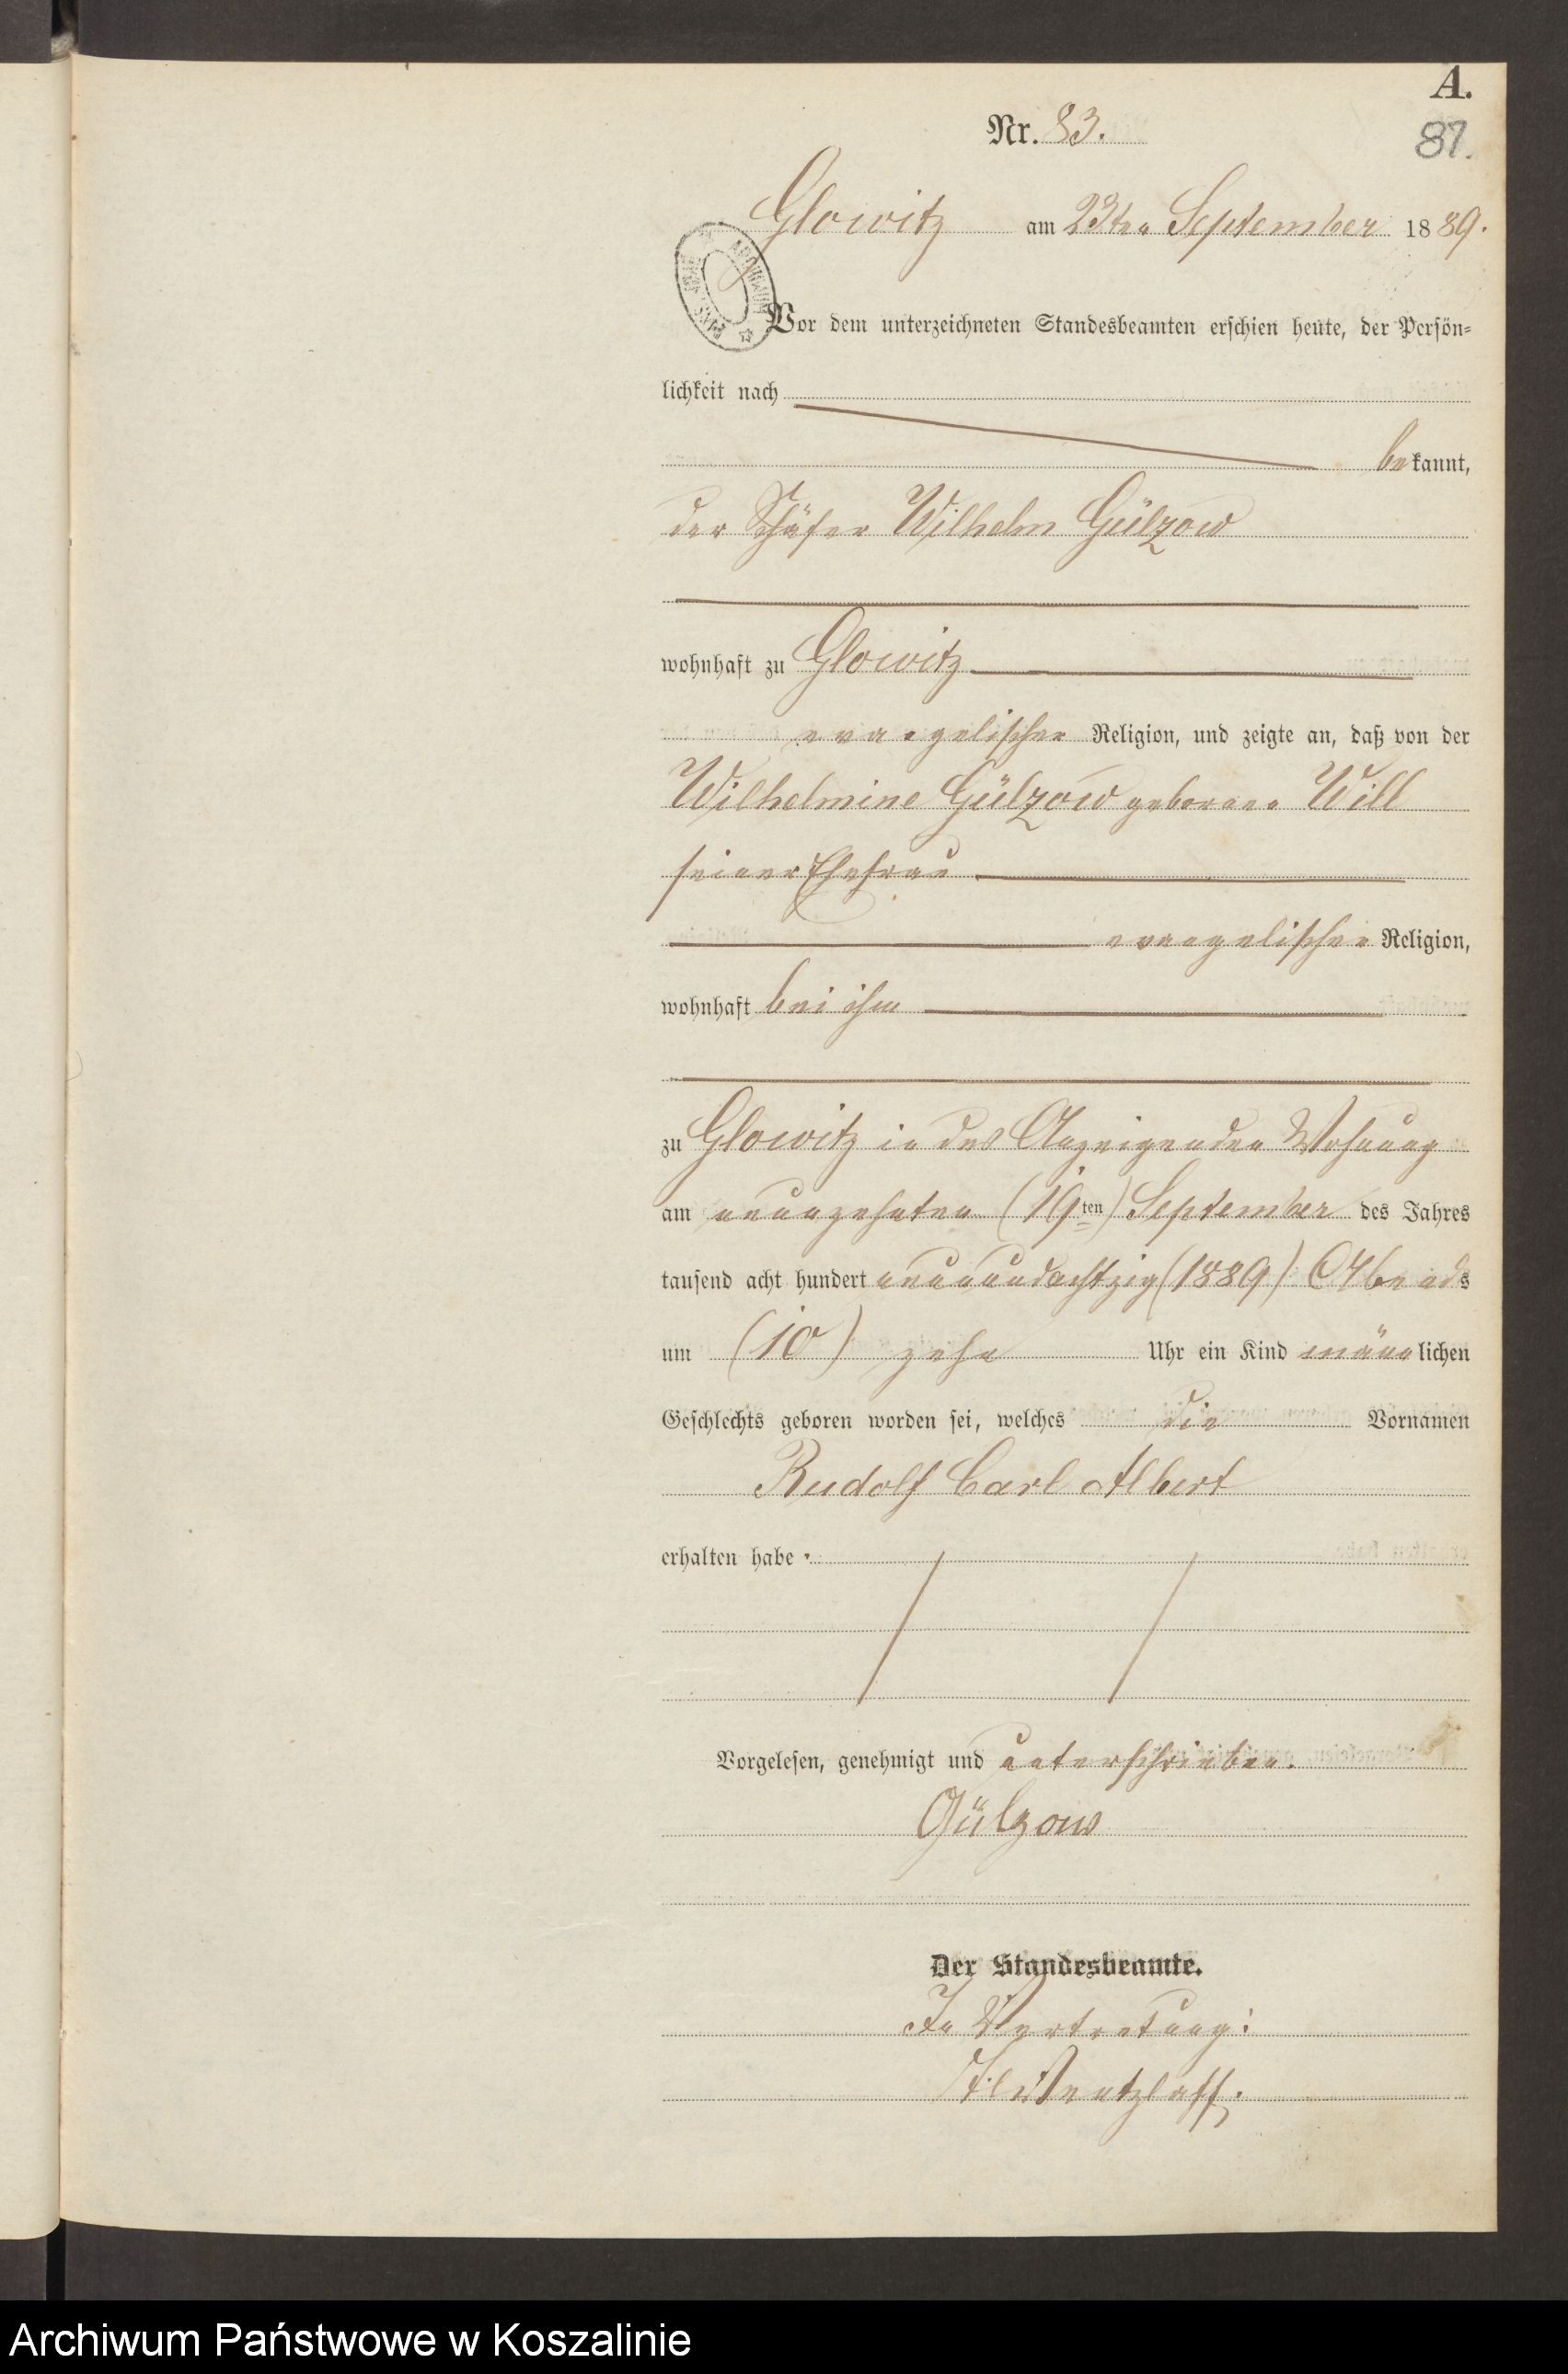 A.
Nr. 83.
87.
Glowitz am 23ten September 1889.
Vor dem unterzeichneten Standesbeamten erschien heute, der Persön-
lichkeit nach
bekannt,
der Schäfer Wilhelm Gülzow
wohnhaft zu Glowitz
evangelischer Religion, und zeigte an, daß von der
Wilhelmine Gülzow geborene Will
seiner Ehefrau
evangelischer Religion,
wohnhaft bei ihm
zu Glowitz in des Anzeigenden Wohnung
am neunzehnten (19ten) September des Jahres
tausend acht hundert neunundachtzig (1889) Abends
um (10) zehn Uhr ein Kind männlichen
Geschlechts geboren worden sei, welches die Vornamen
Rudolf Carl Albert
erhalten habe.
Vorgelesen, genehmigt und unterschrieben.
Gülzow
Der Standesbeamte.
In Vertretung:
Wentzlaff.
Archiwum Państwowe w Koszalinie